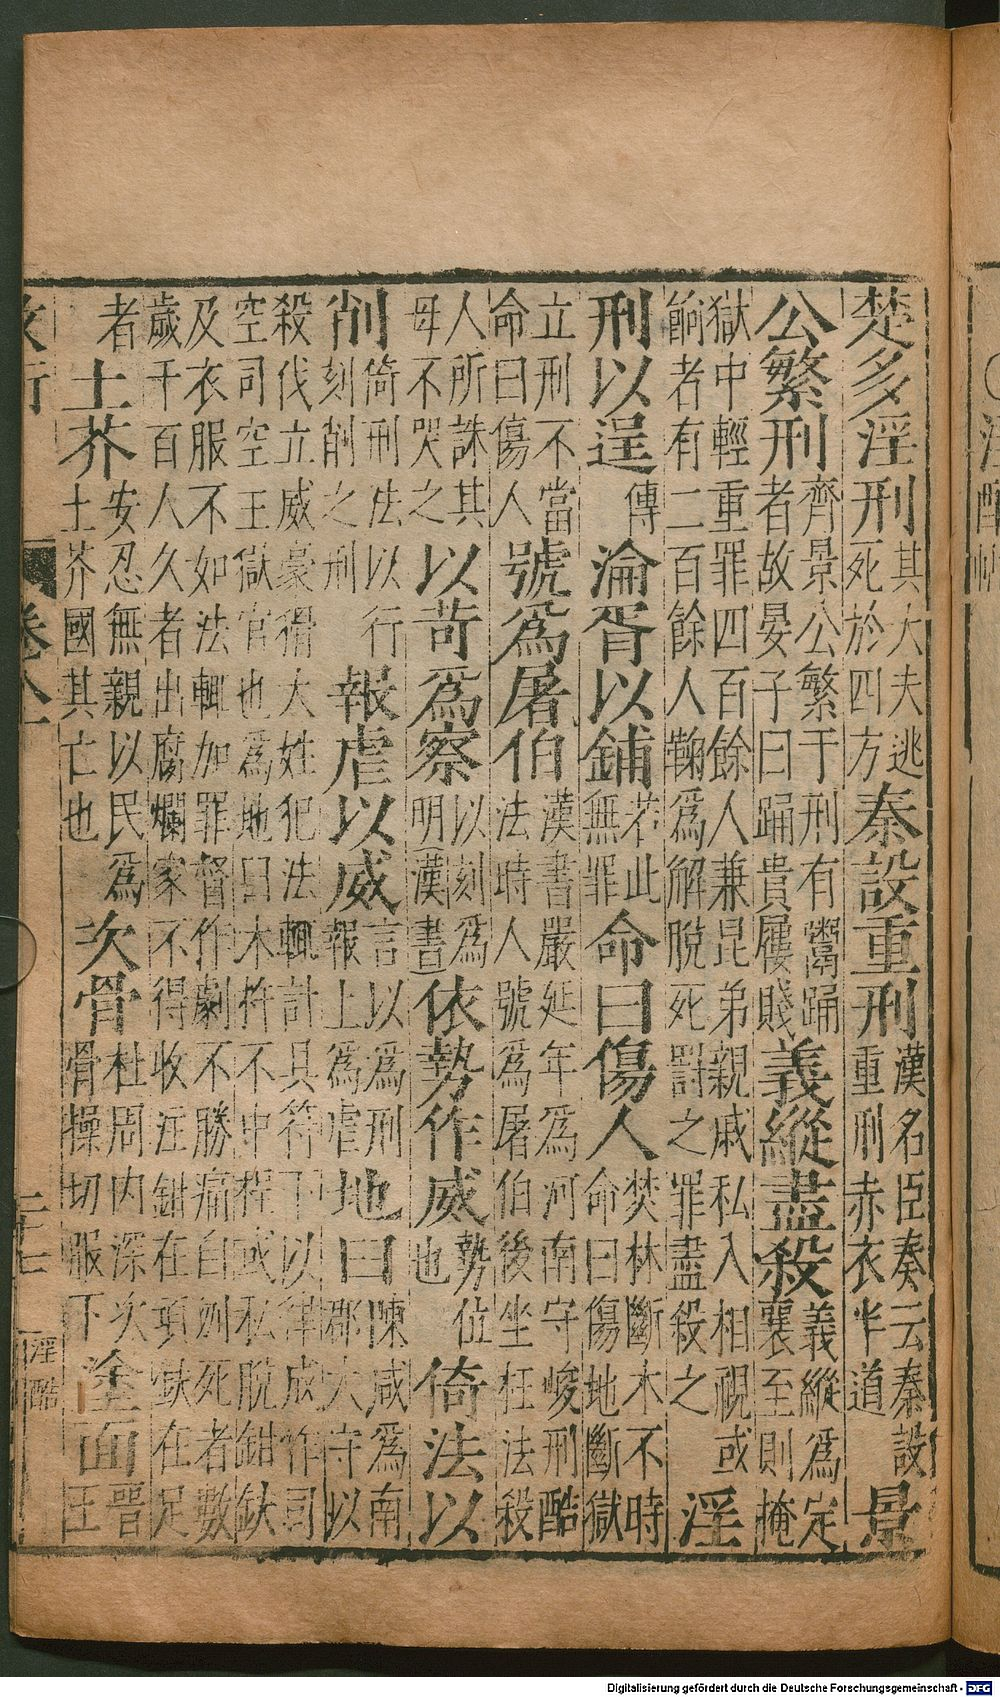 楚多淫刑其大夫逃死於四方秦設重刑漢名臣奏云秦設重刑赤衣半道景
公繁刑齊景公繁于刑有鬻踊者故晏子曰踊貴屨賤義縱盡殺義縱爲定襄至則掩
獄中輕重罪四百餘人兼昆弟親戚私入相視或餉者有二百餘人鞠爲解脫死罰之罪盡殺之淫
刑以逞傳淪胥以鋪若此無罪命曰傷人焚林斷木不時命曰傷地斷獄
立刑不當命曰傷人號爲屠伯漢書嚴延年爲河南守峻刑酷法時人號爲屠伯後坐枉法殺
人所誅其母不哭之以苛爲察以刻爲明漢書依勢作威勢位也倚法以
削倚刑法以行刻削之刑報虐以威言以爲刑報上爲虐地曰陳咸爲南郡大守以
殺伐立威豪猾大姓犯法輒計具符下以律成作司空司空王獄官也爲地臼木杵不中程或私脫鉗釱
及衣服不如法輒加罪督作劇不勝痛自刎死者數歲千百人久者出腐爛家不得收注鉗在頭釱在足
者土芥安忍無親以民爲土芥國其亡也次骨杜周内深次骨操切服下塗面晉王
卷八 二十七 淫酷
Digitalisierung gefördert durch die Deutsche Forschungsgemeinschaft - DFG